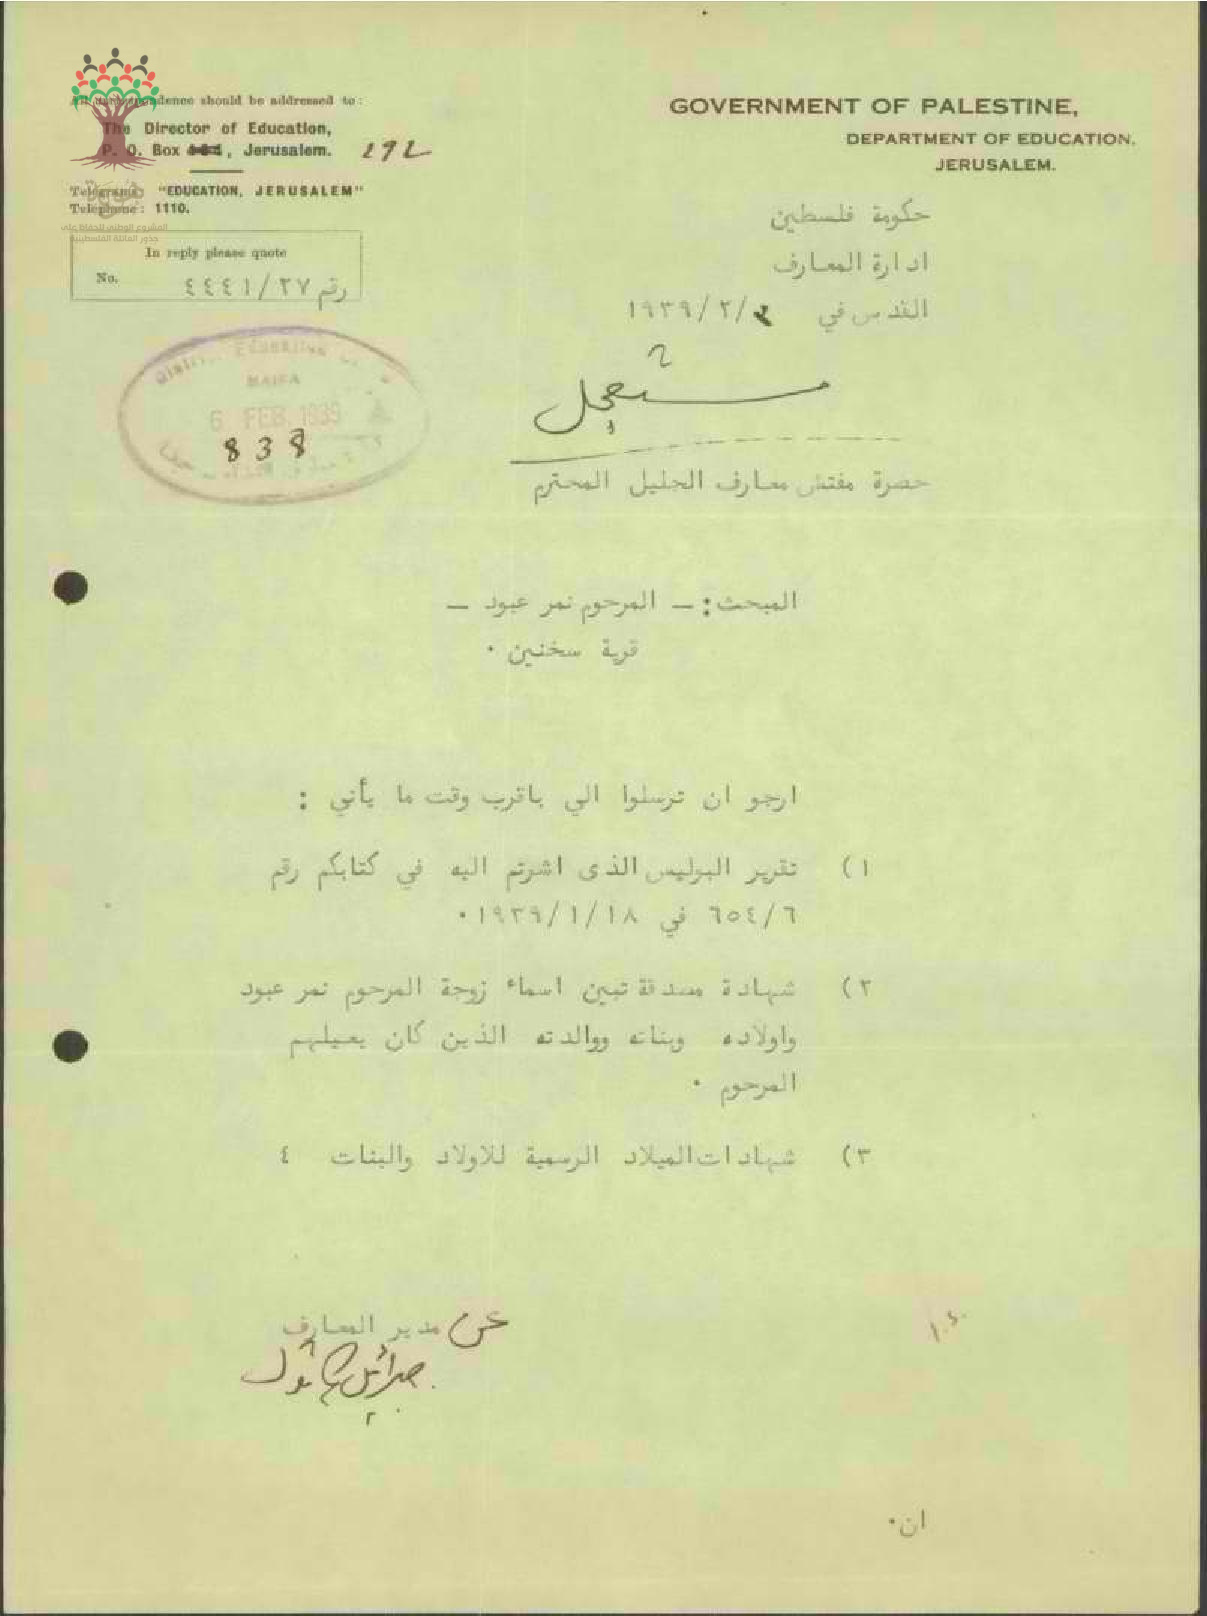 All correspondence should be addressed to:
The Director of Education,
P. O. Box , Jerusalem. 292
Telegrams: "EDUCATION, JERUSALEM"
Telephone: 1110.
المشروع الوطني للحفاظ على
جذور العائلة الفلسطينية
In reply please quote
No. رقم ٤٤٤١/٢٧
GOVERNMENT OF PALESTINE,
DEPARTMENT OF EDUCATION.
JERUSALEM.
حكومة فلسطين
ادارة المعارف
القدس في ٣/٢/١٩٣٩
District Education
HAIFA
6 FEB 1939
838
مستعجل
حضرة مفتش معارف الجليل المحترم
المبحث: – المرحوم نمر عبود –
قرية سخنين ٠
ارجو ان ترسلوا الي باقرب وقت ما يأتي :
١) تقرير البوليس الذى اشرتم اليه في كتابكم رقم
٦٥٤/٦ في ١٩٣٩/١/١٨٠
٢) شهادة مصدقة تبين اسماء زوجة المرحوم نمر عبود
واولاده وبناته ووالدته الذين كان يعيلهم
المرحوم ٠
٣) شهادات الميلاد الرسمية للاولاد والبنات ٤
عن مدير المعارف
جبرائيل كاتول
ان٠